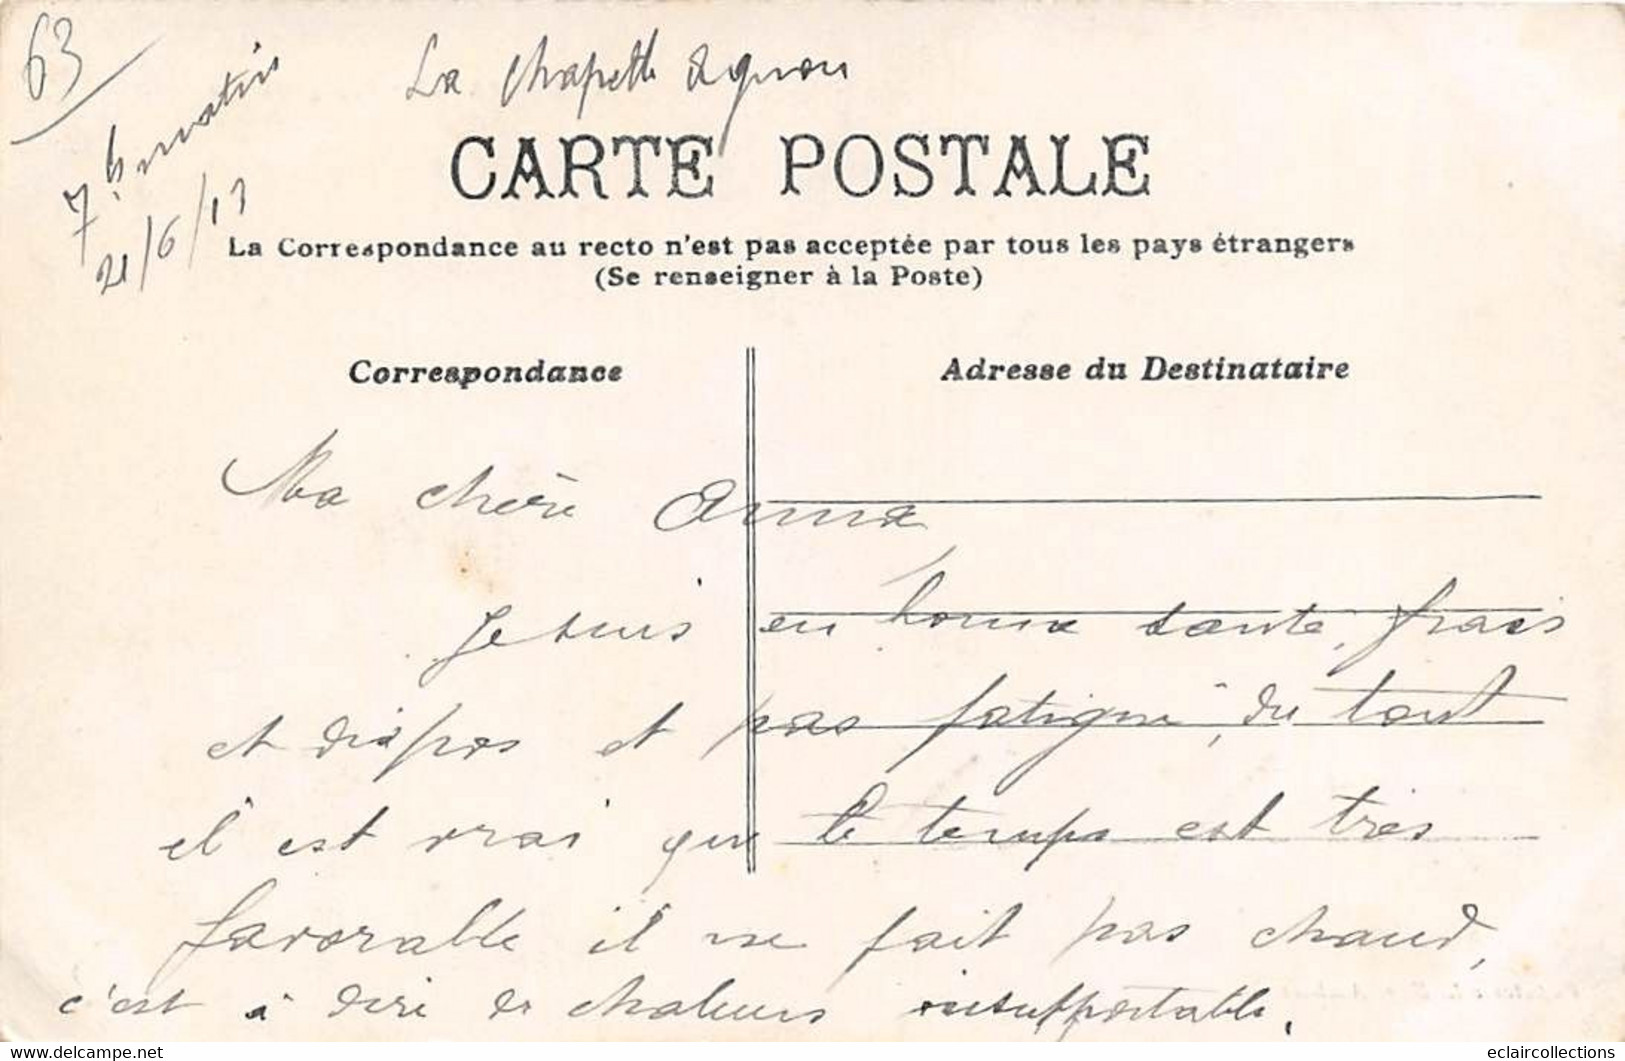 63
La Chapelle Agnon
7h matin
21/6/13
CARTE POSTALE
La Correspondance au recto n'est pas acceptée par tous les pays étrangers
(Se renseigner à la Poste)
Correspondance
Adresse du Destinataire
Ma chère Anna
Je suis en bonne santé, frais
et dispos et pas fatigué, du tout
il est vrai que le temps est très
favorable il ne fait pas chaud,
c'est à dire de chaleurs insupportable.
www.delcampe.net
eclaircollections